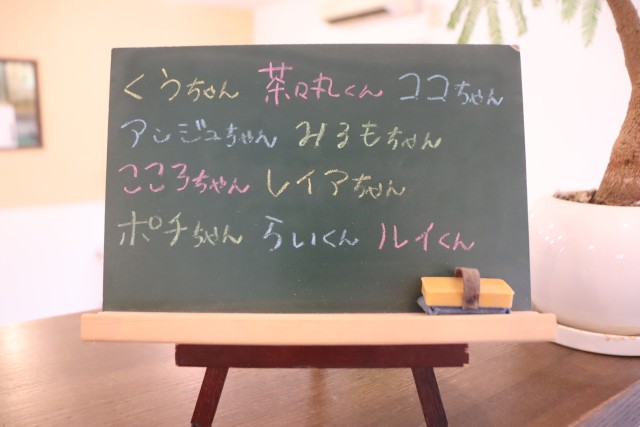 くうちゃん 茶々丸くん ココちゃん
アンジュちゃん みるもちゃん
こころちゃん レイアちゃん
ポチちゃん らいくん ルイくん